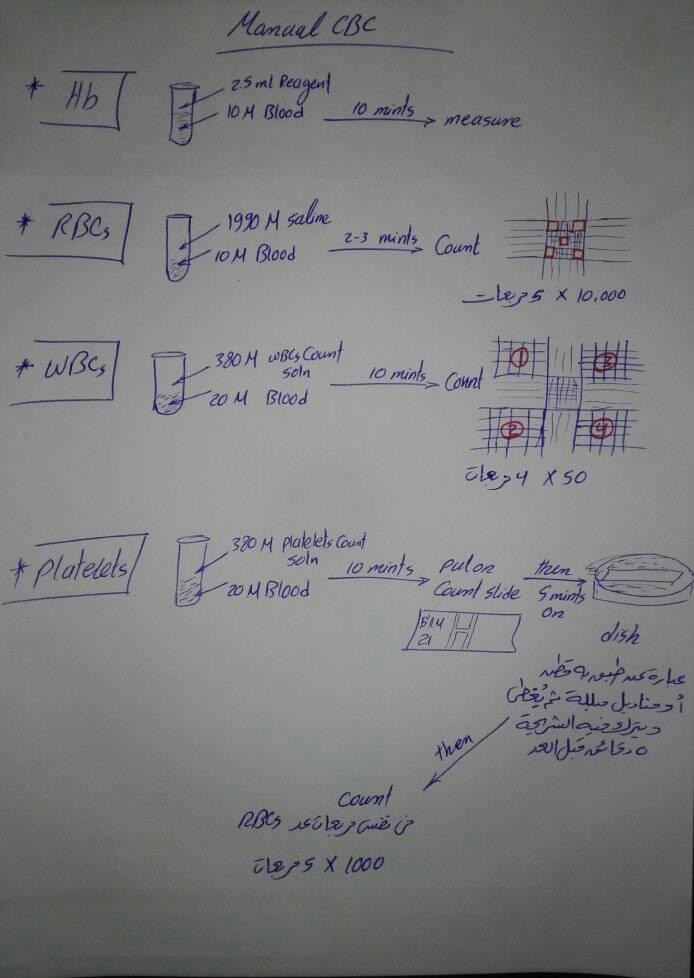 Manual CBC
* Hb
2.5 ml Reagent
10 M Blood
10 mints
measure
* RBCs
1990 M saline
10 M Blood
2-3 mints
Count
5 مربعات X 10,000
* WBCs
380 M WBCs Count
soln
20 M Blood
10 mints
Count
1
3
2
4
4 مربعات X 50
* Platelets
380 M Platelets Count
soln
20 M Blood
10 mints
put on
Count slide
then
5 mints
on
dish
عبارة عن طبق به قطن
أو مناديل مبللة ثم يُغطى
ويترك فيه الشريحة
٥ دقائق قبل العد
then
Count
من نفس مربعات عد RBCs
5 مربعات X 1000